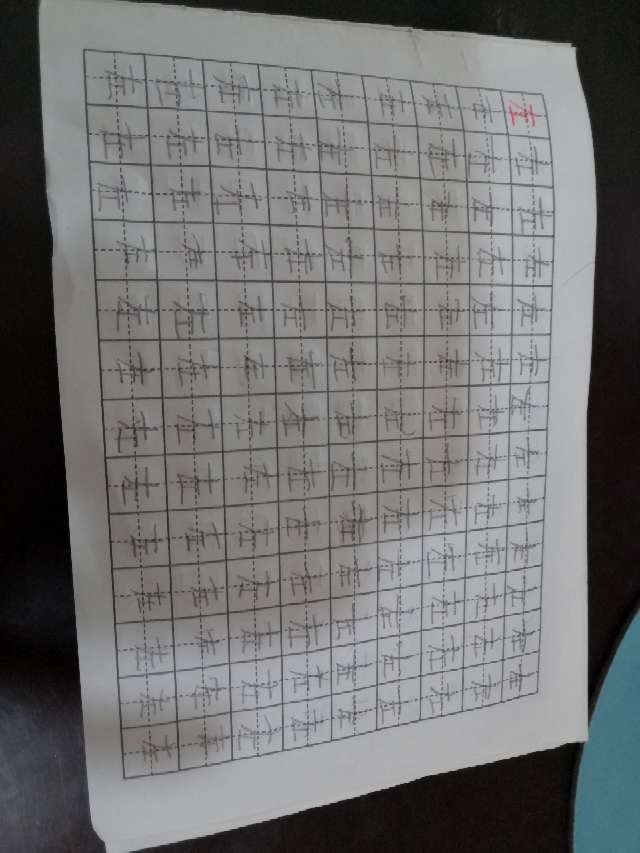 左左左左左左左左左左左左左
左左左左左左左左左左左左左
左左左左左左左左左左左左左
左左左左左左左左左左左左左
左左左左左左左左左左左左左
左左左左左左左左左左左左左
左左左左左左左左左左左左左
左左左左左左左左左左左左左
左左左左左左左左左左左左左